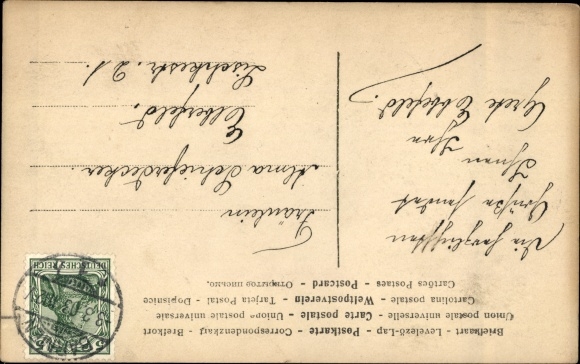 Briefkaart - Levelező-Lap - Postkarte - Correspondenzkag - Brefkort
Union postale universelle - Carte postale - Unione postale universale
Carolina postale - Weltpostverein - Tarjeta Postal - Dopisnice
Cartões Postaes - Postcard - Открытое письмо.
Die herzlichsten
Grüße sendet
Ihnen Ihre
Grete
Fräulein
Alma Schieferdecker
Elberfeld.
Lischkestr. 21.
DEUTSCHES REICH
BARMEN